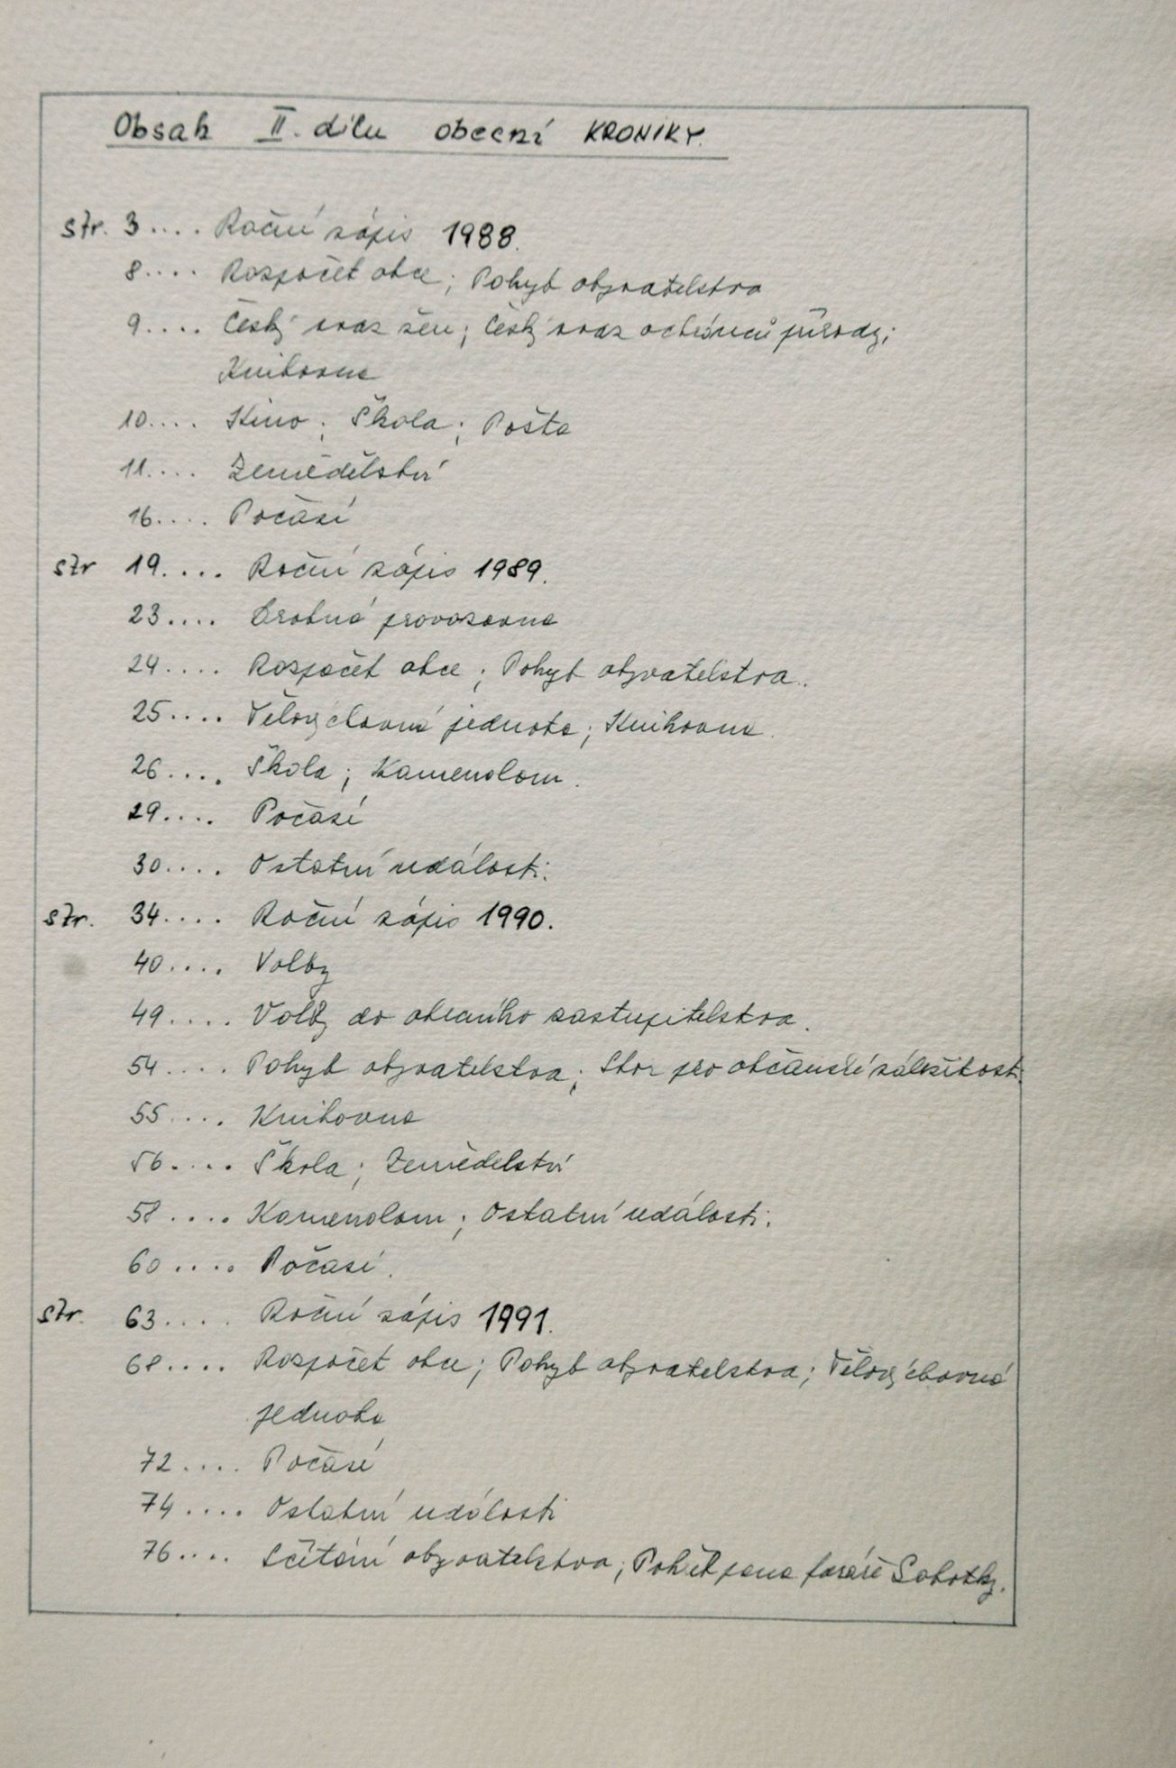 Obsah II. dílu obecní KRONIKY.
str. 3.... Roční zápis 1988.
8.... Rozpočet obce; Pohyb obyvatelstva
9.... Český svaz žen; Český svaz ochránců přírody;
Knihovna
10.... Kino; Škola; Pošta
11.... Zemědělství
16.... Počasí
str 19.... Roční zápis 1989.
23.... Drobná provozovna
24.... Rozpočet obce; Pohyb obyvatelstva.
25.... Tělovýchovná jednota; Knihovna.
26.... Škola; Kamenolom.
29.... Počasí
30.... Ostatní události.
str. 34.... Roční zápis 1990.
40.... Volby
49.... Volby do obecního zastupitelstva.
54.... Pohyb obyvatelstva; Sbor pro občanské záležitosti
55.... Knihovna
56.... Škola; Zemědelství
58.... Kamenolom; Ostatní události.
60.... Počasí.
str. 63.... Roční zápis 1991.
68.... Rozpočet obce; Pohyb obyvatelstva; Tělovýchovná
jednota
72.... Počasí
74.... Ostatní události
76.... Sčítání obyvatelstva; Pohřeb pana faráře Sobotky.